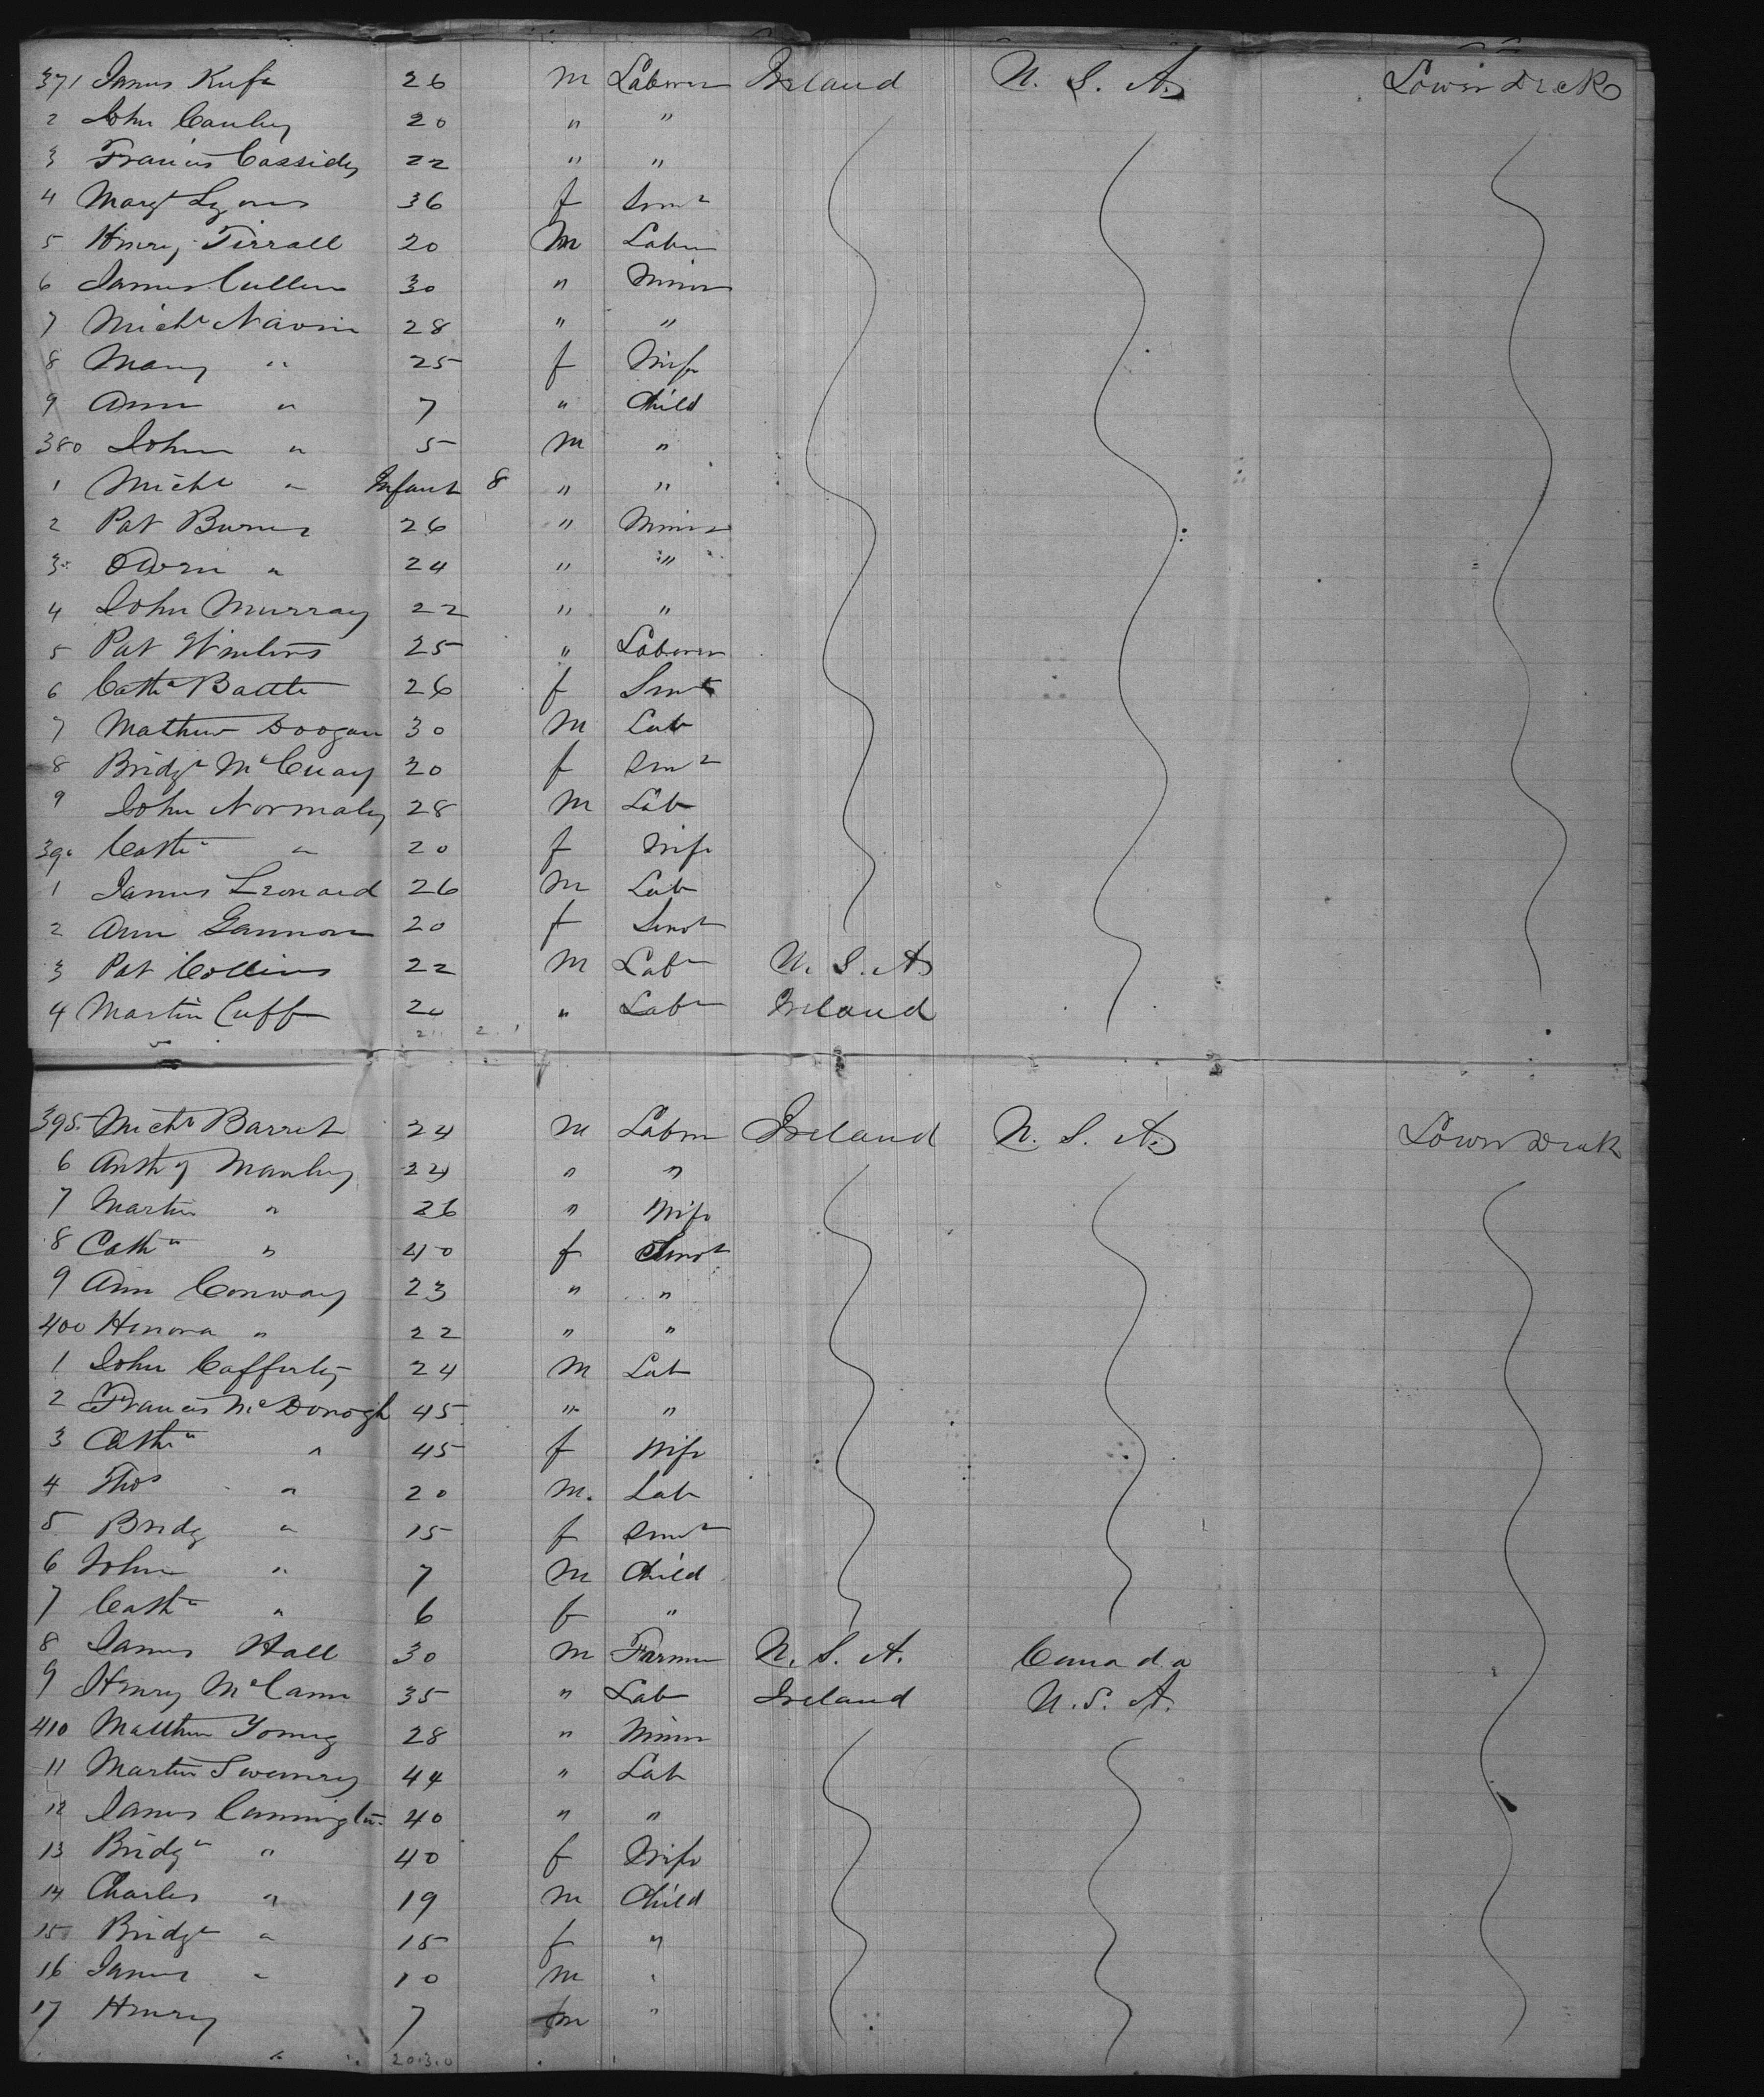 371 James Kufe 26 m Laborer Ireland U. S. A. Lower Deck
2 John Cauley 20 " "
3 Francis Cassidy 22 " "
4 Margt Lyons 36 f Servt
5 Henry Tirrall 20 M Labr
6 James Cullen 30 " Miner
7 Michl Navin 28 " "
8 Mary " 25 f Wife
9 Ann " 7 " Child
380 John " 5 M "
1 Michl " Infant 8 " "
2 Pat Burns 26 " Miner
3 Owen " 24 " "
4 John Murray 22 " "
5 Pat 25 " Laborer
6 Cathe Battle 26 f Servt
7 Mathew Doogan 30 M Lab
8 Bridgt 20 f Servt
9 John Normaly 28 M Lab
390 Cathe " 20 f Wife
1 James Leonard 26 M Lab
2 Ann Gannon 20 f Servt
3 Pat Collins 22 M Labr U. S. A.
4 Martin Cuff 20 " Labr Ireland
395 Michl Barret 24 M Labr Ireland U. S. A. Lower Deck
6 Anthy Manley 24 " "
7 Martin " 26 " Wife
8 Cathe " 40 f Servt
9 Ann Conway 23 " "
400 Honora " 22 " "
1 John Cafferty 24 M Lab
2 Francis McDonogh 45 " "
3 Cathe " 45 f Wife
4 Thos " 20 M. Lab
5 Bridg " 15 f Servt
6 John " 7 M Child
7 Cathe " 6 f "
8 James Hall 30 M Farmer U. S. A. Canada
9 Henry McCann 35 " Lab Ireland U. S. A.
410 Matthew Young 28 " Miner
11 Martin Sweeney 44 " Lab
12 James Cannington 40 " "
13 Bridgt " 40 f Wife
14 Charles " 19 M Child
15 Bridgt " 15 f "
16 James " 10 M "
17 Henry 7 M "
20.3.0